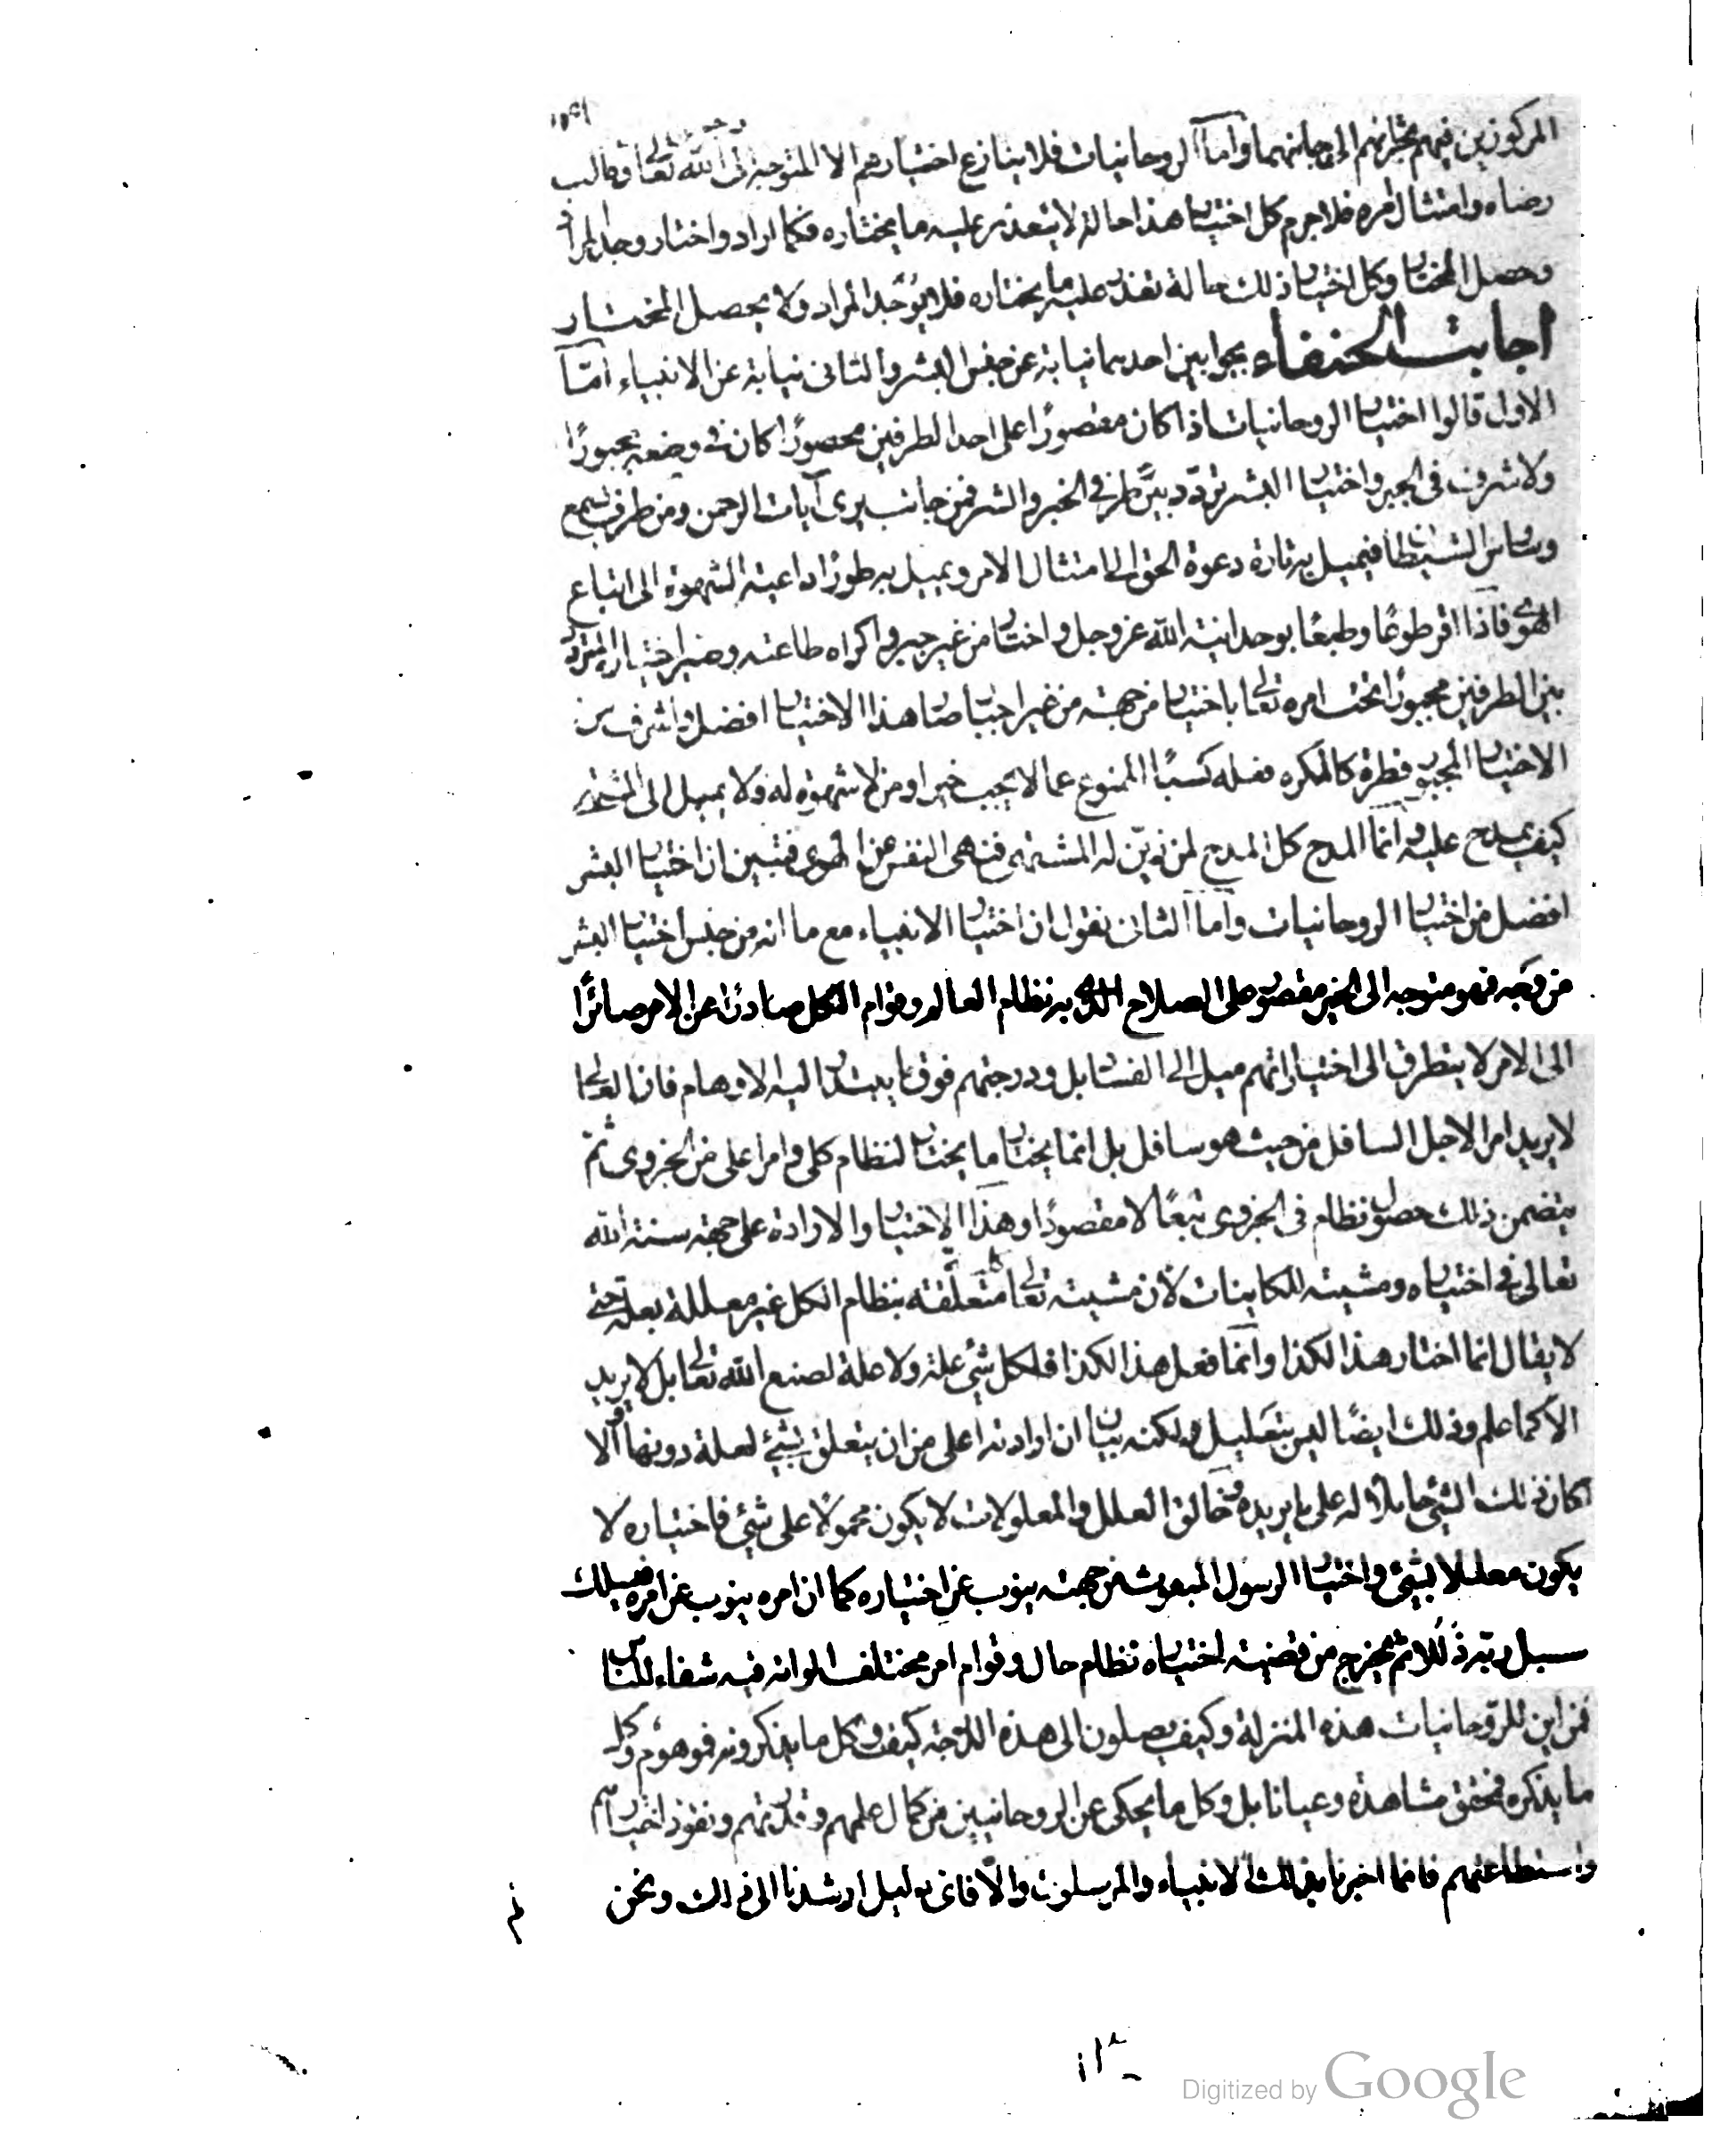 المركوزين فيهم يجرانهم الى جانبهما وأما الروحانيات فلا ينازع اختيارهم الا المتوجه الى الله تعالى وطالب
رضاه وامتثال امره فلا جرم كل اختيار هذا حاله لا يتعذر عليه ما يختاره فكما اراد واختار وجد المراد
وحصل المختار وكل اختيار ذلك حاله تعذر عليه ما يختاره فلا يوجد المراد ولا يحصل المختار
اجابت الحنفاء بجوابين احدهما نيابة عن جنس البشر والثانى نيابة عن الانبياء أما
الاول قالوا اختيار الروحانيات اذا كان مقصورًا على احد الطرفين محصورًا كان فى وضعه مجبورًا
ولا شرف فى الجبر واختيار البشر تردد بين طرفى الخير والشر فمن جانب يرى آيات الرحمن ومن طرف يسمع
وساوس الشيطان فيميل به تارة دعوة الحق الى امتثال الامر ويميل به طورًا داعية الشهوة الى اتباع
الهوى فاذا اقر طوعًا وطبعًا بوحدانية الله عز وجل واختار من غير جبر واكراه طاعته وصير اختياره المتردد
بين الطرفين مجبورًا تحت امره تعالى باختيار من جهته من غير اجبار صار هذا الاختيار افضل واشرف من
الاختيار المجبور فطرة كالمكره فعله كسبًا الممنوع عما لا يجب خيرا ومن لا شهوة له ولا يميل الى المشتهى
كيف يمدح عليه وانما المدح كل المدح لمن زين له المشتهى فنهى النفس عن الهوى فتبين ان اختيار البشر
افضل من اختيار الروحانيات وأما الثانى نقول ان اختيار الانبياء مع ما انه من جنس اختيار البشر
من وجه فهو متوجه الى الخير مقصور على الصلاح الذى به نظام العالم وقوام الكل صادرًا عن الامر صائرًا
الى الامر لا يتطرق الى اختياراتهم ميل الى الفساد بل ودرجتهم فوق ما يبتدر اليه الاوهام فان العالى
لا يريد امرا لاجل السافل من حيث هو سافل بل انما يختار ما يختار لنظام كلى وامر اعلى من الجزوى ثم
يتضمن ذلك حصول نظام فى الجزوى تبعًا لا مقصودًا وهذا الاختيار والارادة على جهة سنة الله
تعالى فى اختياره ومشيته للكاينات لأن مشيته تعالى متعلقة بنظام الكل غير معللة بعلة حتى
لا يقال انما اختار هذا لكذا وانما فعل هذا لكذا فلكل شئ علة ولا علة لصنع الله تعالى بل لا يريد
الا كما علم وذلك ايضًا ليس بتعليل ولكنه بيان ان ارادته اعلى من ان يتعلق بشئ لعلة دونها والا
لكان ذلك الشئ حاملا له على ما يريده وخالق العلل والمعلولات لا يكون محمولا على شئ فاختياره لا
يكون معللا بشئ واختيار الرسول المبعوث من جهته ينوب عن اختياره كما ان امره ينوب عن امره فيسلك
سبل ربه ذللا ثم يخرج من قضية اختياره نظام حال وقوام امر مختلف الوانه فيه شفاء للناس
فمن اين للروحانيات هذه المنزلة وكيف يصلون الى هذه الدرجة كيف وكل ما يذكرونه فموهوم وكل
ما يذكره فمحقق مشاهدة وعيانا بل وكل ما يحكى عن الروحانيين من كمال علمهم وقدرتهم ونفوذ اختيارهم
واستطاعتهم فانما اخبرنا بذلك الانبياء والمرسلون والا فاى دليل ارشدنا الى ذلك ونحن
Digitized by Google